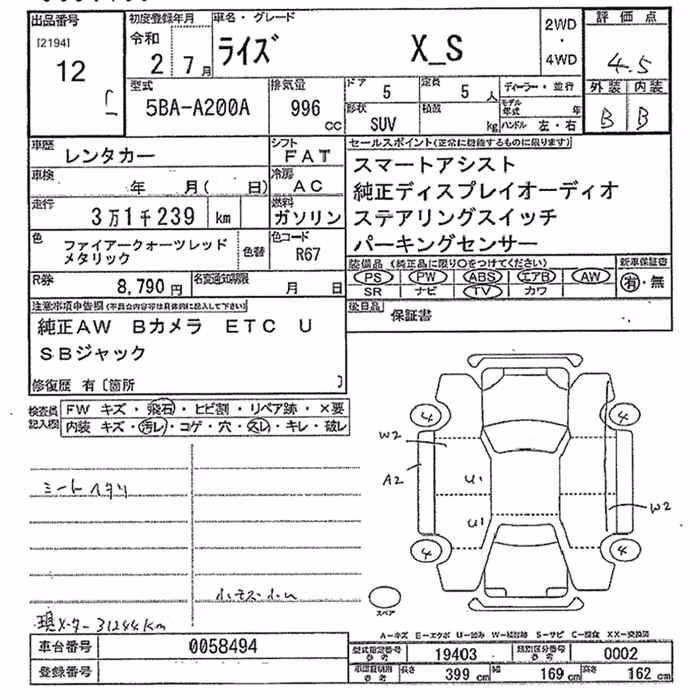 出品番号
[2194]
12
初度登録年月
令和
2 7月
車名・グレード
ライズ X_S
2WD
・
4WD
評価点
4.5
外装 内装
B B
型式
5BA-A200A
排気量
996
cc
ドア
5
定員
5
人
形状
SUV
積載
kg
ディーラー・並行
モデル年式
年
ハンドル 左・右
車歴
レンタカー
シフト
FAT
車検
年 月( 日)
冷房
AC
走行
3万1千239 km
燃料
ガソリン
色
ファイアークォーツレッド
メタリック
色替
色コード
R67
R券
8,790 円
名変通知期限
月 日
セールスポイント(正常に機能するものに限ります)
スマートアシスト
純正ディスプレイオーディオ
ステアリングスイッチ
パーキングセンサー
装備品 (純正品に限り○をつけてください)
新車保証書
PS PW ABS エアB AW
有・無
SR ナビ TV カワ
後日品
保証書
注意事項申告欄(不具合内容等は具体的に記入して下さい)
純正AW Bカメラ ETC U
SBジャック
修復歴 有〔箇所 〕
検査員
記入欄
FW キズ・飛石・ヒビ割・リペア跡・×要
内装 キズ・汚レ・コゲ・穴・スレ・キレ・破レ
シートヘタリ
現メーター 31244Km
4 4
W2
A2
U1
U1
W2
4 4
スペア
A-キズ E-エクボ U-凹み W-補修跡 S-サビ C-腐食 XX-交換済
車台番号
0058494
登録番号
型式指定番号
参考
19403
類別区分番号
参考
0002
車両証明用
参考
長さ
399 cm
幅
169 cm
高さ
162 cm